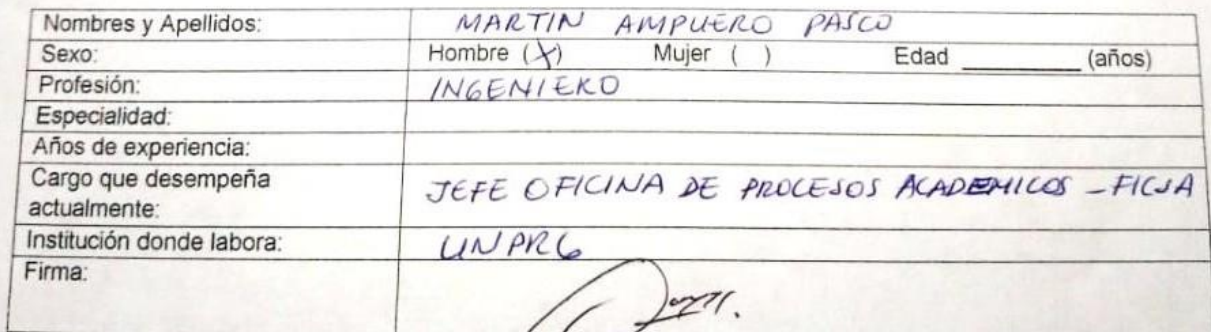 Nombres y Apellidos: MARTIN AMPUERO PASCO
Sexo: Hombre (X) Mujer ( ) Edad ________ (años)
Profesión: INGENIERO
Especialidad:
Años de experiencia:
Cargo que desempeña
actualmente: JEFE OFICINA DE PROCESOS ACADEMICOS - FICSA
Institución donde labora: UNPRG
Firma: